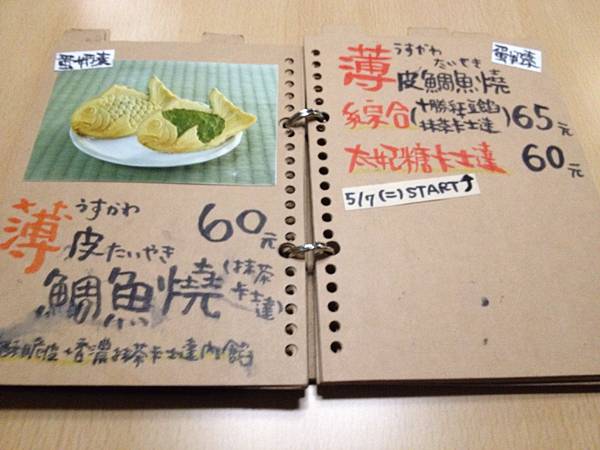 蛋奶素
薄皮鯛魚燒
うすかわ
たいやき
60元
(抹茶
卡士達)
酥脆皮+香濃抹茶卡士達內餡
蛋奶素
薄皮鯛魚燒
うすかわ
たいやき
綜合(十勝紅豆餡
抹茶卡士達)65元
太妃糖卡士達 60元
5/7(二)START